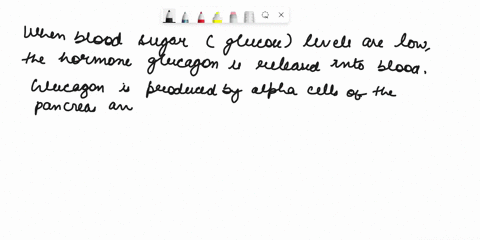 When blood sugar (glucose) levels are low,
the hormone glucagon is released into blood.
Glucagon is produced by alpha cells of the
pancreas an